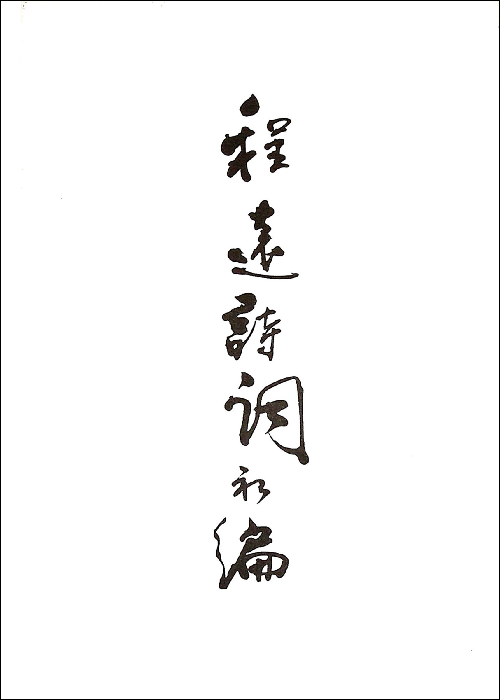 程遠詩詞初編